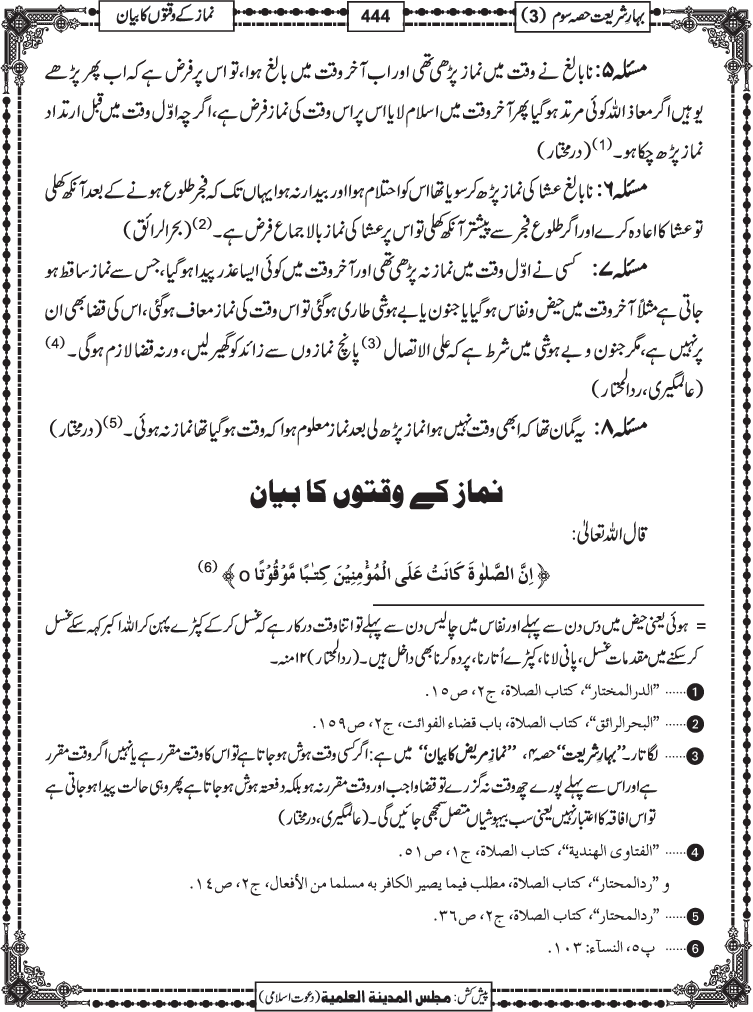 بہارِ شریعت حصہ سوم (3)
444
نماز کے وقتوں کا بیان
مسئلہ ۵: نابالغ نے وقت میں نماز پڑھی تھی اور اب آخر وقت میں بالغ ہوا، تو اس پر فرض ہے کہ اب پھر پڑھے
یوہیں اگر معاذ اللہ کوئی مرتد ہوگیا پھر آخر وقت میں اسلام لایا اس پر اس وقت کی نماز فرض ہے، اگرچہ اوّل وقت میں قبل ارتداد
نماز پڑھ چکا ہو۔ (1) (درمختار)
مسئلہ ۶: نابالغ عشا کی نماز پڑھ کر سویا تھا اس کو احتلام ہوا اور بیدار نہ ہوا یہاں تک کہ فجر طلوع ہونے کے بعد آنکھ کھلی
تو عشا کا اعادہ کرے اور اگر طلوع فجر سے پیشتر آنکھ کھلی تو اس پر عشا کی نماز بالا جماع فرض ہے۔ (2) (بحرالرائق)
مسئلہ ۷: کسی نے اوّل وقت میں نماز نہ پڑھی تھی اور آخر وقت میں کوئی ایسا عذر پیدا ہوگیا، جس سے نماز ساقط ہو
جاتی ہے مثلاً آخر وقت میں حیض و نفاس ہوگیا یا جنون یا بے ہوشی طاری ہوگئی تو اس وقت کی نماز معاف ہوگئی، اس کی قضا بھی ان
پر نہیں ہے، مگر جنون و بے ہوشی میں شرط ہے کہ علی الاتصال (3) پانچ نمازوں سے زائد کو گھیر لیں، ورنہ قضا لازم ہوگی۔ (4)
(عالمگیری، ردالمحتار)
مسئلہ ۸: یہ گمان تھا کہ ابھی وقت نہیں ہوا نماز پڑھ لی بعد نماز معلوم ہوا کہ وقت ہوگیا تھا نماز نہ ہوئی۔ (5) (درمختار)
نماز کے وقتوں کا بیان
قال اللہ تعالیٰ:
﴿ اِنَّ الصَّلٰوةَ كَانَتْ عَلَى الْمُؤْمِنِیْنَ كِتٰبًا مَّوْقُوْتًا o ﴾ (6)
= ہوئی یعنی حیض میں دس دن سے پہلے اور نفاس میں چالیس دن سے پہلے تو اتنا وقت درکار ہے کہ غسل کر کے کپڑے پہن کر اللہ اکبر کہہ سکے غسل
کر سکنے میں مقدمات غسل، پانی لانا، کپڑے اُتارنا، پردہ کرنا بھی داخل ہیں۔ (ردالمحتار) ۱۲ منہ۔
1 ...... ”الدرالمختار“، کتاب الصلاة، ج۲، ص۱۵.
2 ...... ”البحرالرائق“، کتاب الصلاة، باب قضاء الفوائت، ج۲، ص۱۵۹.
3 ...... لگاتار۔ ”بہارِ شریعت“ حصہ ۴، ”نمازِ مریض کا بیان“ میں ہے: اگر کسی وقت ہوش ہوجاتا ہے تو اس کا وقت مقرر ہے یا نہیں اگر وقت مقرر
ہے اور اس سے پہلے پورے چھ وقت نہ گزرے تو قضا واجب اور وقت مقرر نہ ہو بلکہ دفعتہ ہوش ہوجاتا ہے پھر وہی حالت پیدا ہوجاتی ہے
تو اس افاقہ کا اعتبار نہیں یعنی سب بیہوشیاں متصل سمجھی جائیں گی۔ (عالمگیری، درمختار)
4 ...... ”الفتاوی الھندیة“، کتاب الصلاة، ج۱، ص۵۱.
و ”ردالمحتار“، کتاب الصلاة، مطلب فیما یصیر الکافر به مسلما من الأفعال، ج۲، ص۱۴.
5 ...... ”ردالمحتار“، کتاب الصلاة، ج۲، ص۳۶.
6 ...... پ۵، النسآء: ۱۰۳.
پیش کش: مجلس المدینة العلمیة (دعوتِ اسلامی)